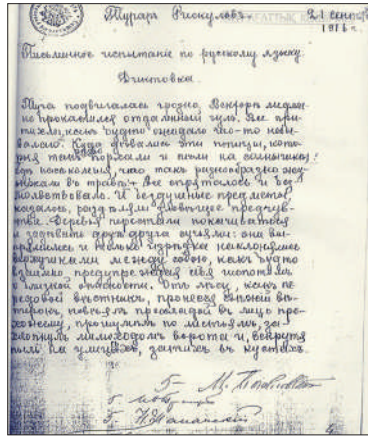 Турарь Рискуловъ.
21 сент
1916 г.
Письменное испытаніе по русскому языку.
Диктовка.
Туча подвигалась грозно. Вскорѣ
не прокатился отдаленный гулъ. Все при-
тихло, какъ будто ожидало что-то небы-
валаго. Куда дѣвались эти птицы, кото-
рыя такъ порхали и пѣли на солнышкѣ!
Гдѣ насекомыя, что такъ разнообразно жуж-
жали въ травѣ? Все спряталось и без-
молвствовало. И бездушные предметы,
казалось, раздѣляли зловѣщие предчув-
ствіе. Деревья перестали покачиваться
и задѣвать другъ друга сучьями: они вы-
прямились и только изрѣдка наклонялись
верхушками между собою, какъ будто
взаимно предупреждая себя шепотомъ
о близкой опасности. Отъ лѣсу, какъ пе-
редовой вѣстникъ, пронесся свѣжій вѣ-
терокъ, повѣялъ прохладой въ лицо про-
хожему, прошумѣлъ по листьямъ, за-
хлопнулъ мимоходомъ ворота и, вскрутя
пыль на улицахъ, затихъ въ кустахъ.
5-
5-
5-